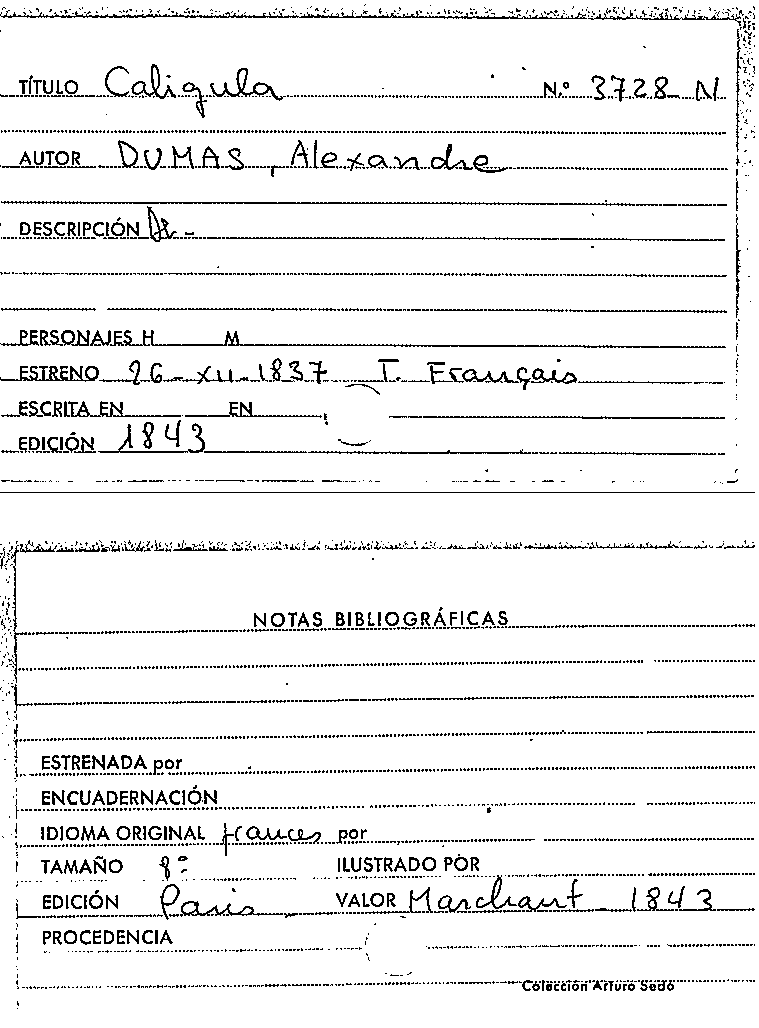 TÍTULO Caligula N.º 3728-N
AUTOR DUMAS, Alexandre
DESCRIPCIÓN
PERSONAJES H M
ESTRENO 26-XII-1837 T. Français
ESCRITA EN EN
EDICIÓN 1843
NOTAS BIBLIOGRÁFICAS
ESTRENADA por
ENCUADERNACIÓN
IDIOMA ORIGINAL frances por
TAMAÑO 8º ILUSTRADO POR
EDICIÓN Paris VALOR Marchant - 1843
PROCEDENCIA
Colección Arturo Sedó